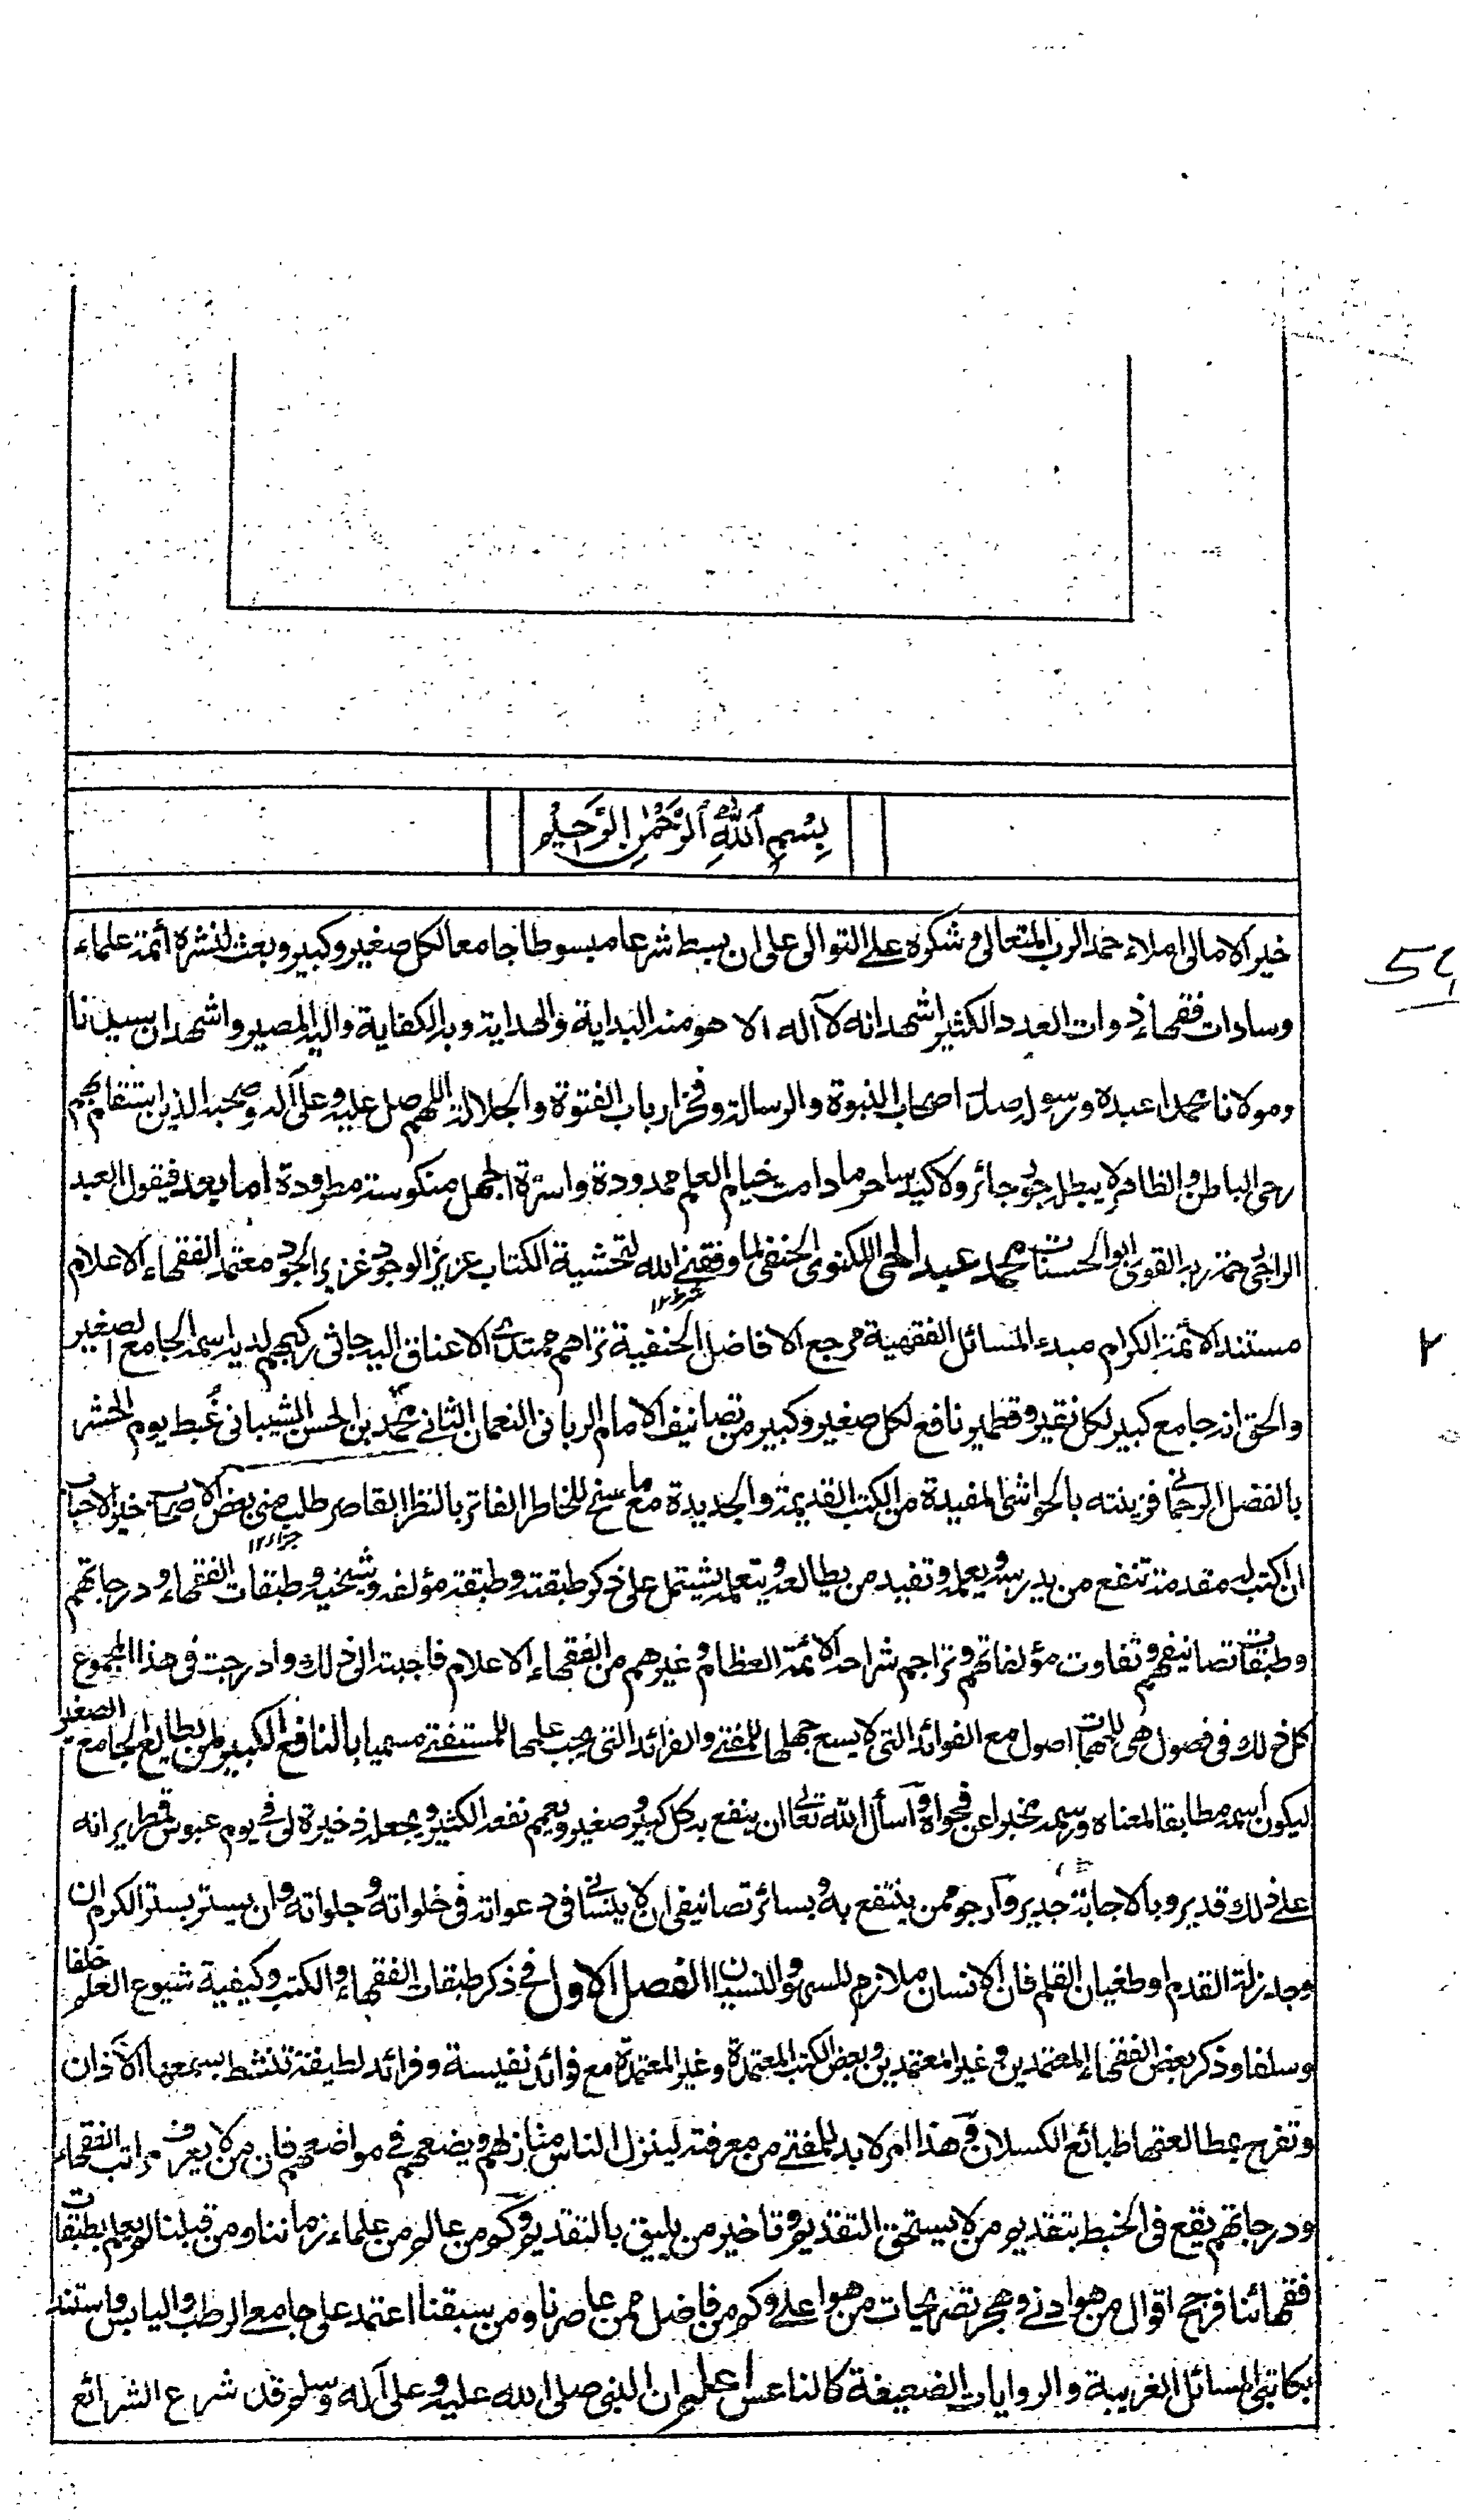 بِسْمِ اللّٰهِ الرَّحْمٰنِ الرَّحِيْمِ
خير الامالى املاء حمد الرب المتعالى وشكره على التوالى على ان بسط شرعا مبسوطا جامعا لكل صغير وكبير وبعث لنشره أئمة علماء
وسادات فقهاء ذوات العدد الكثير اشهد انه لا آله الا هو منه البداية والهداية وبه الكفاية واليه المصير واشهد ان سيدنا
ومولانا محمدا عبده ورسوله صدر اصحاب النبوة والرسالة وفخر ارباب الفتوة والجلالة اللهم صل عليه وعلى آله وصحبه الذين استقام بهم
رحى الباطن والظاهر لا يبطله جور جائر ولا كيد ساحر ما دامت خيام العلم ممدودة واسرة الجهل منكوسة مطرودة اما بعد فيقول العبد
الراجى رحمة ربه القوى ابو الحسنات محمد عبد الحى اللكنوى الحنفى لما وفقنى الله لتحشية الكتاب عزيز الوجود غزير الجود معتمد الفقهاء الاعلام
مستند الأئمة الكرام مبدء المسائل الفقهية مرجع الافاضل الحنفية تراهم ممتدى الاعناق اليه جاثى ركبهم لديه اسمه الجامع الصغير
والحق انه جامع كبير لكل نقير وقطمير نافع لكل صغير وكبير من تصانيف الامام الربانى النعمان الثانى محمد بن الحسن الشيبانى غبط يوم الحشر
بالفضل الرحمانى فزينته بالحواشى المفيدة من الكتب القديمة والجديدة مع ما سنح للخاطر الفاتر بالنظر القاصر طلب منى بعض الاصحاب خير الاحباب
ان اكتب له مقدمة تنفع من يدرسه ويعلمه وتفيد من يطالعه ويتعلمه يشتمل على ذكر طبقته وطبقة مؤلفه وشيخيه وطبقات الفقهاء ودرجاتهم
وطبقات تصانيفهم وتفاوت مؤلفاتهم وتراجم شراحه الائمة العظام وغيرهم من الفقهاء الاعلام فاجبته الى ذلك وادرجت فى هذا المجموع
كل ذلك فى فصول هى للمهمات اصول مع الفوائد التى لا يسع جهلها للمفتى والفرائد التى يجب علمها للمستفتى مسميا بالنافع الكبير لمن يطالع الجامع الصغير
ليكون اسمه مطابقا لمعناه ورسمه مخبرا عن فحواه وأسأل الله تعالى ان ينفع به كل كبير وصغير ويعمم نفعه الكثير ويجعله ذخيرة لى فى يوم عبوس قمطرير انه
على ذلك قدير وبالاجابة جدير وارجو ممن ينتفع به وبسائر تصانيفى ان لا ينسانى فى دعواته فى خلواته وجلواته وان يستر بستر الكرم ان
وجد زلة القدم او طغيان القلم فان الانسان ملازم للسهو والنسيان الفصل الاول فى ذكر طبقات الفقهاء والكتب وكيفية شيوع العلم خلفا
وسلفا وذكر بعض الفقهاء المعتمدين وغير المعتمدين وبعض الكتب المعتمدة وغير المعتمدة مع فوائد نفيسة وفرائد لطيفة تنشط بسمعها الآذان
وتفرح بمطالعتها طبائع الكسلان وهذا امر لا بد للمفتى من معرفته لينزل الناس منازلهم ويضعهم فى مواضعهم فان من لا يعرف مراتب الفقهاء
ودرجاتهم يقع فى الخبط بتقديم من لا يستحق التقديم وتاخير من يليق بالتقديم وكم من عالم من علماء زماننا ومن قبلنا لم يعلم بطبقات
فقهائنا فرجح اقوال من هو ادنى وهجر تصريحات من هو اعلى وكم من فاضل ممن عاصرنا ومن سبقنا اعتمد على جامعى الرطب واليابس واستند
بكاتبى المسائل الغريبة والروايات الضعيفة كالناعس اعلم ان النبى صلى الله عليه وعلى آله وسلم قد شرع الشرائع
٢